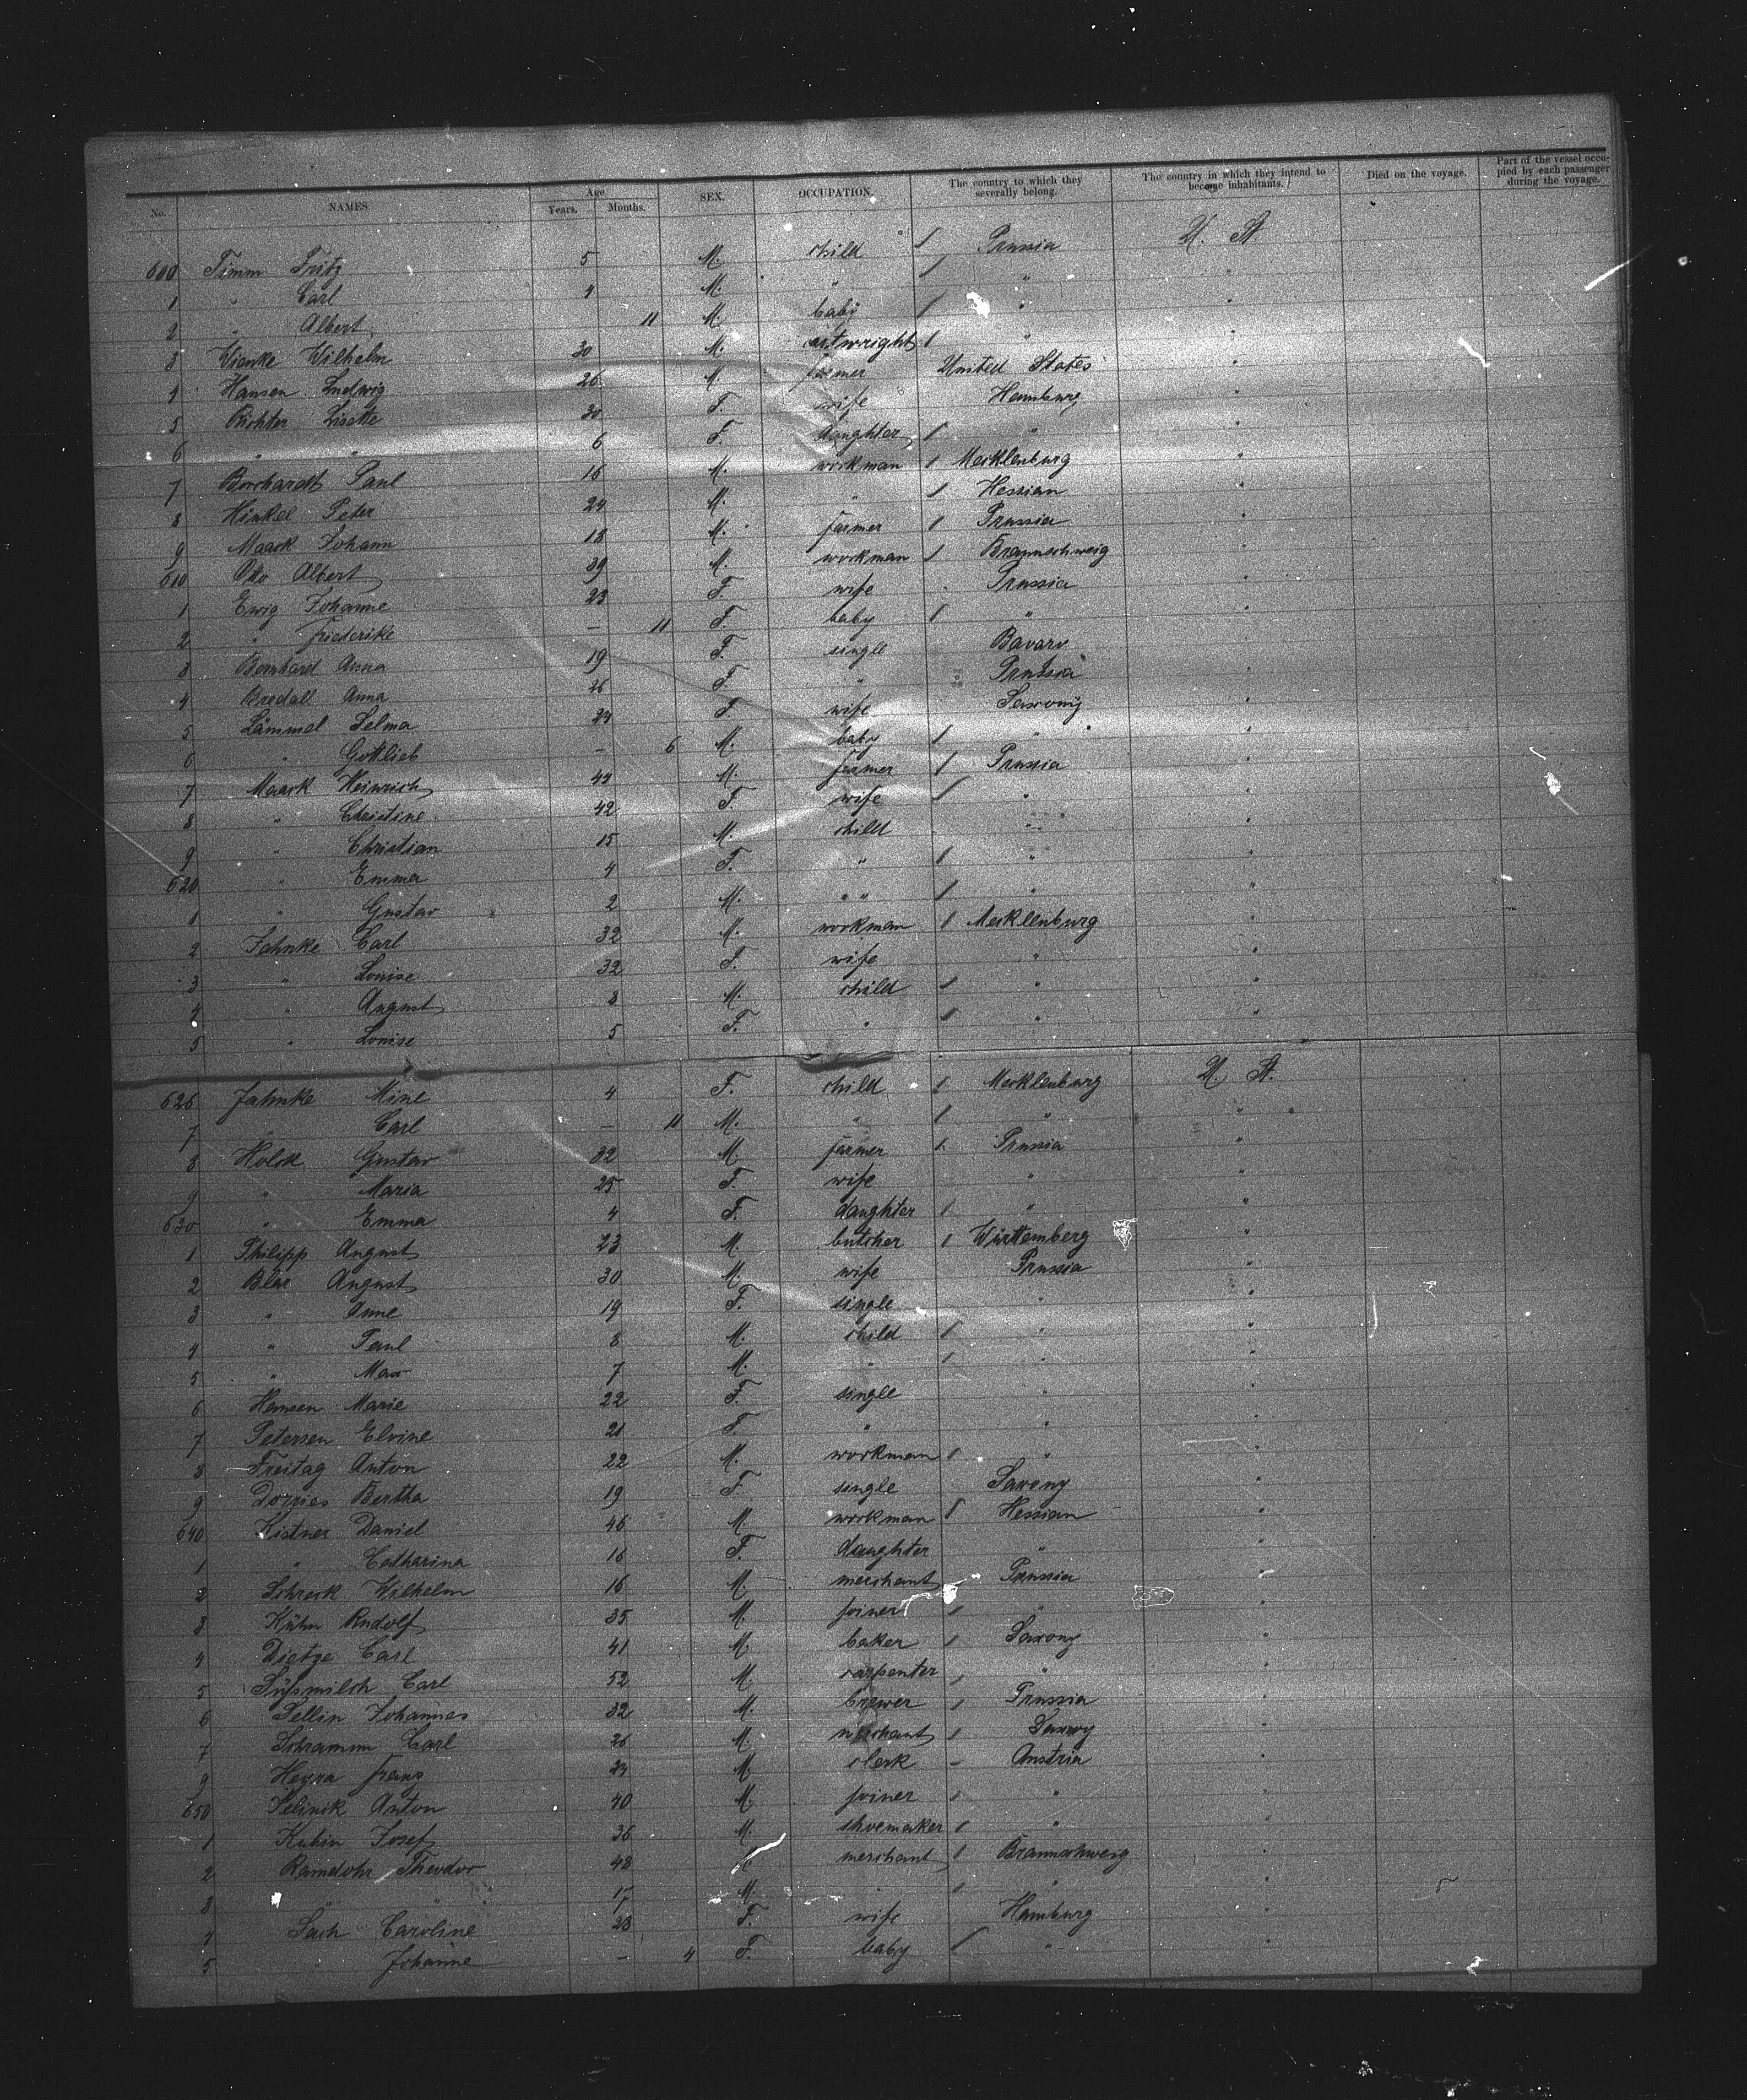 No. NAMES Age Years. Months. SEX. OCCUPATION. The country to which they severally belong. The country in which they intend to become inhabitants. Died on the voyage. Part of the vessel occupied by each passenger during the voyage.
600 Timm Fritz 5 M. child Prussia U. St.
1 " Carl 4 M. " " "
2 " Albert 11 M. baby " "
3 Wienke Wilhelm 30 M. cartwright " "
4 Hansen Ludwig 26 M. farmer United States "
5 Richter Lisette 30 F. wife Hamburg "
6 " " 6 F. daughter " "
7 Borchardt Paul 16 M. workman Mecklenburg "
8 Hinkel Peter 24 M. " Hessian "
9 Maack Johann 18 M. farmer Prussia "
610 Otto Albert 39 M. workman Braunschweig "
1 Ewig Johanne 23 F. wife Prussia "
2 " Friederike — 11 F. baby " "
3 Bernhard Anna 19 F. single Bavaro "
4 Bredall Anna 26 F. " Prussia "
5 Lämmel Selma 24 F. wife Saxony "
6 " Gottlieb — 6 M. baby " "
7 Maack Heinrich 44 M. farmer Prussia "
8 " Christine 42 F. wife " "
9 " Christian 15 M. child " "
620 " Emma 4 F. " " "
1 " Gustav 2 M. " " " "
2 Jahnke Carl 32 M. workman Mecklenburg "
3 " Louise 32 F. wife " "
4 " August 8 M. child " "
5 " Louise 5 F. " " "
626 Jahnke Mine 4 F. child Mecklenburg U. St.
7 " Carl — 11 M. " " "
8 Holck Gustav 32 M. farmer Prussia "
9 " Maria 25 F. wife " "
630 " Emma 4 F. daughter " "
1 Philipp August 23 M. butcher Württemberg "
2 Blär August 30 M. wife Prussia "
3 " Anne 19 F. single " "
4 " Paul 8 M. child " "
5 " Max 7 M. " " "
6 Hansen Marie 22 F. single " "
7 Petersen Elvine 21 F. " " "
8 Freitag Anton 22 M. workman " "
9 Dorries Bertha 19 F. single Saxony "
640 Kistner Daniel 46 M. workman Hessian "
1 " Catharina 16 F. daughter " "
2 Schreck Wilhelm 16 M. merchant Prussia "
3 Kühn Rudolf 35 M. joiner " "
4 Dietze Carl 41 M. baker Saxony "
5 Süßmilch Carl 52 M. carpenter " "
6 Sellin Johannes 32 M. brewer Prussia "
7 Schramm Carl 26 M. merchant Saxony "
9 Heyra Franz 24 M. clerk Austria "
650 Selinik Anton 40 M. joiner " "
1 Kubin Josef 36 M. shoemaker " "
2 Ramdohr Theodor 48 merchant Braunschweig "
3 " " 17 M. " " "
4 Sach Caroline 28 F. wife Hamburg "
5 " Johanne — 4 F. baby " "